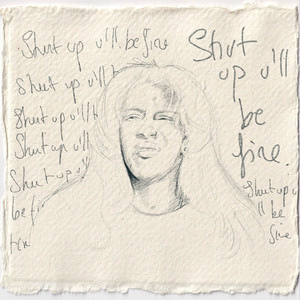 Shut up u'll be fine
Shut up u'll b
Shut up u'll b
Shut up u'll
Shut up u'
be f
fin
Shut
up u'll
be
fine.
Shut up u
'll be
fine